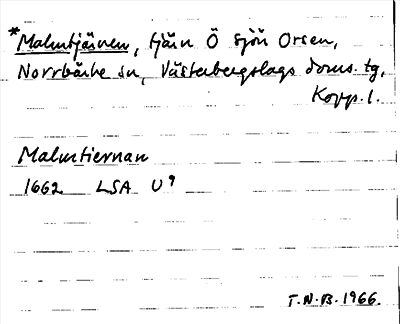 *Malmtjärnen, tjärn Ö sjön Orsen,
Norrbärke sn, Västerbergslags doms. tg,
Kopp. l.
Malmtiernan
1662 LSA U9
T.N.B. 1966.